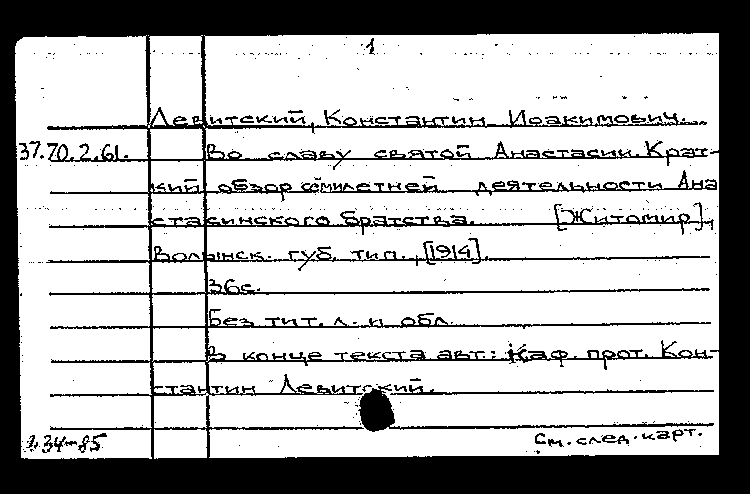 1
Левитский, Константин Иоакимович.
37.70.2.61. Во славу святой Анастасии. Крат-
кий обзор семилетней деятельности Ана
стасинского братства. [Житомир],
Волынск. губ. тип., [1914].
36с.
Без тит. л. и обл.
В конце текста авт: Каф. прот. Кон-
стантин Левитский.
См. след. карт.